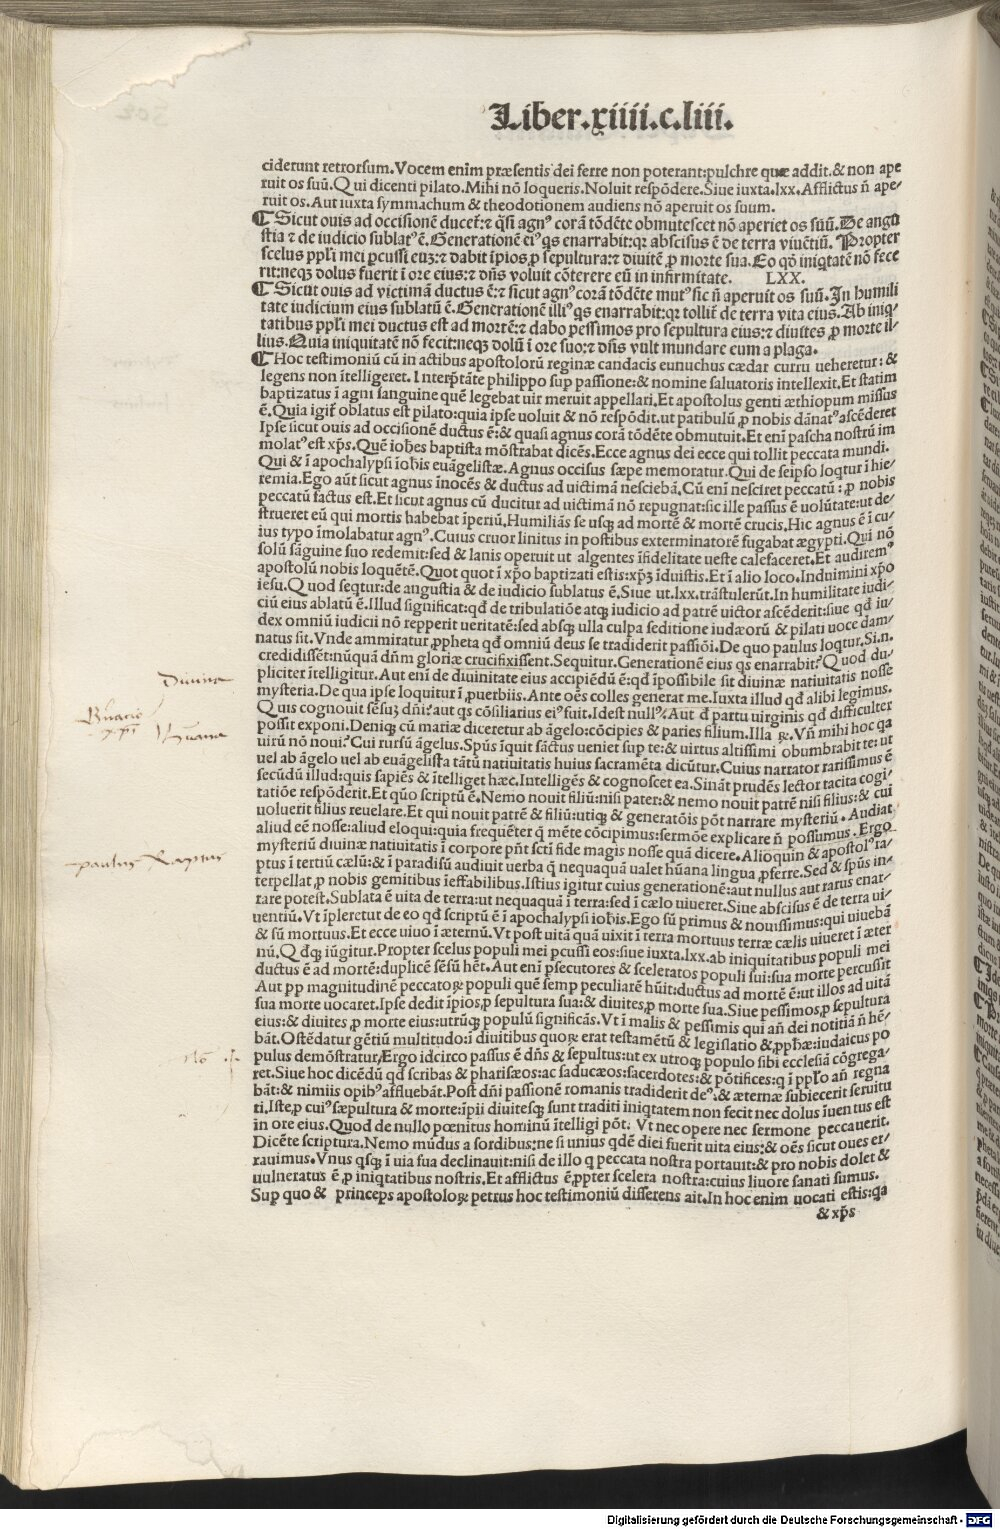 Liber.xiiii.c.liii.
ciderunt retrorsum.Vocem enim præsentis dei ferre non poterant:pulchre quæ addit.& non ape
ruit os suū.Qui dicenti pilato.Mihi nō loqueris.Noluit respōdere.Siue iuxta.lxx.Afflictus ñ ape-
ruit os.Aut iuxta symmachum & theodotionem audiens nō aperuit os suum.
¶ Sicut ouis ad occisionē ducet̄:⁊ q̄si agnꝰ corā tōdēte obmutescet nō aperiet os suū.De angu
stia ⁊ de iudicio sublatꝰ ē.Generationē eiꝰ q̄s enarrabit:qꝛ abscisus ē de terra viuētiū. Propter
scelus pp̄li mei ꝑcussi euꝫ:⁊ dabit īpios ꝓ sepultura:⁊ diuitē ꝓ morte sua.Eo qđ iniqtatē nō fece
rit:neqꝫ dolus fuerit ī ore eius:⁊ dn̄s voluit cōterere eū in infirmitate. LXX.
¶ Sicut ouis ad victimā ductus ē:⁊ sicut agnꝰ corā tōdēte mutꝰ sic ñ aperuit os suū.In humili
tate iudicium eius sublatū ē.Generationē illiꝰ q̄s enarrabit:qꝛ tollit̄ de terra vita eius.Ab iniq-
tatibus pp̄li mei ductus est ad mortē:⁊ dabo pessimos pro sepultura eius:⁊ diuites ꝓ morte il-
lius.Quia iniquitatē nō fecit:neqꝫ dolū ī ore suo:⁊ dn̄s vult mundare eum a plaga.
¶ Hoc testimoniū cū in actibus apostolorū reginæ candacis eunuchus cædar curru ueheretur: &
legens non ītelligeret. Interp̄tāte philippo sup passione:& nomine saluatoris intellexit.Et statim
baptizatus ī agni sanguine quē legebat uir meruit appellari.Et apostolus genti æthiopum missus
ē.Quia igit̄ oblatus est pilato:quia ipse uoluit & nō respōdit.ut patibulū ꝓ nobis dānatꝰ ascēderet
Ipse sicut ouis ad occisionē ductus ē:& quasi agnus corā tōdēte obmutuit.Et eni pascha nostrū im
molatꝰ est xp̄s.Quē ioh̄es baptista mōstrabat dicēs.Ecce agnus dei ecce qui tollit peccata mundi.
Qui & ī apochalypsi ioh̄is euāgelistæ.Agnus occisus sæpe memoratur.Qui de seipso loqtur ī hie-
remia.Ego aūt sicut agnus īnocēs & ductus ad uictimā nesciebā.Cū enī nesciret peccatū:ꝓ nobis
peccatū factus est.Et sicut agnus cū ducitur ad uictimā nō repugnat:sic ille passus ē uolūtate:ut de-
strueret eū qui mortis habebat īperiū.Humiliās se usqꝫ ad mortē & mortē crucis.Hic agnus ē ī cu-
ius typo īmolabatur agnꝰ.Cuius cruor linitus in postibus exterminatorē fugabat ægypti.Qui nō
solū sāguine suo redemit:sed & lanis operuit ut algentes īfidelitate ueste calefaceret.Et audiremꝰ
apostolū nobis loquētē.Quot quot ī xp̄o baptizati estis:xp̄ꝫ īduistis.Et ī alio loco.Induimini xp̄o
iesu.Quod seqtur:de angustia & de iudicio sublatus ē.Siue ut.lxx.trāstulerūt.In humilitate iudi-
ciū eius ablatū ē.Illud significat:qđ de tribulatiōe atqꝫ iudicio ad patrē victor ascēderit:siue qđ iu-
dex omniū iudicii nō repperit ueritatē:sed absqꝫ ulla culpa seditione iudæorū & pilati uoce dam-
natus sit.Vnde ammiratur ꝓpheta qđ omniū deus se tradiderit passiōi.De quo paulus loqtur.Si.n.
credidissēt:nūquā dn̄m gloriæ crucifixissent.Sequitur.Generationē eius qs enarrabit?Quod du-
pliciter ītelligitur.Aut enī de diuinitate eius accipiēdū ē:qđ īpossibile sit diuinæ natiuitatis nosse
mysteria.De qua ipse loquitur ī ꝓuerbiis.Ante oēs colles generat me.Iuxta illud qđ alibi legimus.
Quis cognouit sēsuꝫ dn̄i?aut qs cōsiliarius eiꝰ fuit.Idest nullꝰ.Aut đ partu virginis qđ difficulter
possit exponi.Deniqꝫ cū mariæ diceretur ab āgelo:cōcipies & paries filium.Illa ꝶ.Vn̄ mihi hoc qa
uirū nō noui?Cui rursū āgelus.Spūs īquit sāctus ueniet sup te:& uirtus altissimi obumbrabit te: ut
uel ab āgelo uel ab euāgelista tātū natiuitatis huius sacramēta dicūtur.Cuius narrator rarissimus ē
secūdū illud:quis sapiēs & ītelliget hæc.Intelligēs & cognoscet ea.Sināt prudēs lector tacita cogi-
tatiōe respōderit.Et quō scriptū ē.Nemo nouit filiū:nisi pater:& nemo nouit patrē nisi filius:& cui
uoluerit filius reuelare.Et qui nouit patrē & filiū:utiqꝫ & generatōis pōt narrare mysteriū.Audiat
aliud eē nosse:aliud eloqui:quia frequēter q̄ mēte cōcipimus:sermōe explicare ñ possumus.Ergo
mysteriū diuinæ natiuitatis ī corpore pn̄t sctī fide magis nosse quā dicere.Alioquin & apostolꝰ ra-
ptus ī tertiū cælū:& ī paradisū audiuit uerba q̄ nequaquā ualet hūana lingua ꝓferre.Sed & spūs in-
terpellat ꝓ nobis gemitibus īeffabilibus.Istius igitur cuius generationē:aut nullus aut rarus enar-
rare potest.Sublata ē uita de terra:ut nequaquā ī terra:sed ī cælo uiueret.Siue abscisus ē de terra ui-
uentiū.Vt īpleretur de eo qđ scriptū ē ī apochalypsi ioh̄is.Ego sū primus & nouissimus:qui uiuebā
& sū mortuus.Et ecce uiuo ī æternū.Vt post uitā quā uixit ī terra mortuus terræ cælis uiueret ī æter
nū.Qđqꝫ iūgitur.Propter scelus populi mei ꝑcussi eos:siue iuxta.lxx.ab iniquitatibus populi mei
ductus ē ad mortē:duplicē sēsū hēt.Aut enī ꝑsecutores & sceleratos populi sui:sua morte percussit
Aut pp magnitudinē peccatoꝝ populi quē semp peculiarē hūit:ductus ad mortē ē:ut illos ad uitā
sua morte uocaret.Ipse dedit īpios,ꝓ sepultura sua:& diuites,ꝓ morte sua.Siue pessimos,ꝓ sepultura
eius:& diuites ꝓ morte eius:utrūqꝫ populū significās.Vt ī malis & pessimis qui an̄ dei notitiā ñ hē-
bāt.Ostēdatur gētiū multitudo:ī diuitibus quoꝝ erat testamētū & legislatio &,ꝓph̄æ:iudaicus po
pulus demōstratur.Ergo idcirco passus ē dn̄s & sepultus:ut ex utroqꝫ populo sibi ecclesiā cōgrega-
ret.Siue hoc dicēdū qđ scribas & pharisæos:ac saducæos:sacerdotes:& pōtifices:q ī pp̄lo an̄ regna
bāt:& nimiis opibꝰ affluebāt.Post dn̄i passionē romanis tradiderit deꝰ.& æternæ subiecerit seruitu
ti.Iste,ꝓ cuiꝰ sæpultura & morte:īpii diuitesqꝫ sunt traditi iniqtatem non fecit nec dolus īuentus est
in ore eius.Quod de nullo pœnitus hominū ītelligi pōt. Vt nec opere nec sermone peccauerit.
Dicēte scriptura.Nemo mūdus a sordibus:ne si unius qdē diei fuerit uita eius:& oēs sicut oues er-
rauimus.Vnus qsqꝫ ī uia sua declinauit:nisi de illo q peccata nostra portauit:& pro nobis dolet &
uulneratus ē ꝓ iniqtatibus nostris.Et afflictus ē,ꝓpter scelera nostra:cuius liuore sanati sumus.
Sup quo & princeps apostoloꝝ petrus hoc testimoniū disserens ait.In hoc enim uocati estis:qa
& xp̄s
Diuina
Humana
paulus Raptus
Nō
Digitalisierung gefördert durch die Deutsche Forschungsgemeinschaft - DFG